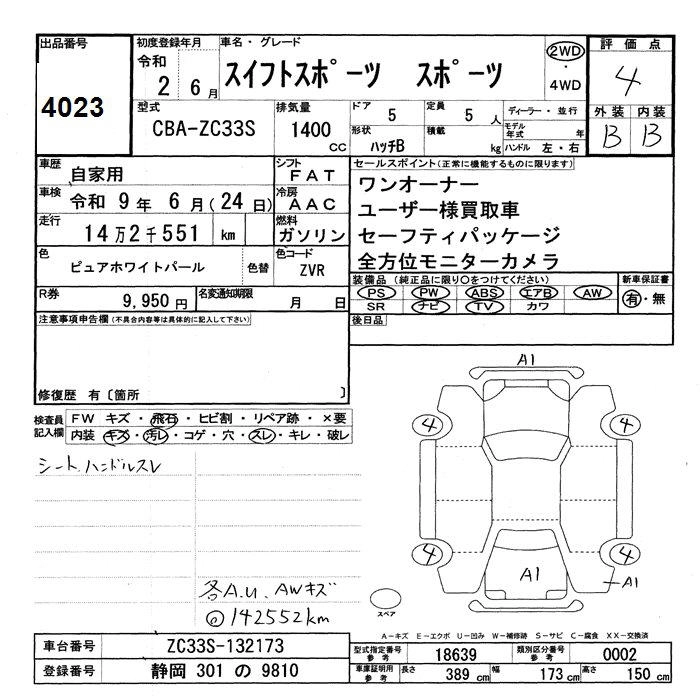 出品番号
4023
初度登録年月
令和
2 6月
車名・グレード
スイフトスポーツ スポーツ
2WD
・
4WD
評価点
4
外装 内装
B B
型式
CBA-ZC33S
排気量
1400
cc
ドア 5
形状 ハッチB
定員 5 人
積載 kg
ディーラー・並行
モデル年式 年
ハンドル 左・右
車歴 自家用
シフト FAT
車検 令和 9年 6月(24日)
冷房 AAC
走行 14万2千551 km
燃料 ガソリン
色 ピュアホワイトパール 色替
色コード ZVR
R券 9,950円
名変通知期限 月 日
セールスポイント(正常に機能するものに限ります)
ワンオーナー
ユーザー様買取車
セーフティパッケージ
全方位モニターカメラ
装備品(純正品に限り○をつけてください) 新車保証書
PS PW ABS エアB AW 有・無
SR ナビ TV カワ
後日品
注意事項申告欄(不具合内容等は具体的に記入して下さい)
修復歴 有〔箇所 〕
検査員記入欄
FW キズ・飛石・ヒビ割・リペア跡・×要
内装 キズ・汚レ・コゲ・穴・スレ・キレ・破レ
シート ハンドルスレ
各A.U、AWキズ
◎142552km
A1
4 4
4 4
A1
A1
スペア
A-キズ E-エクボ U-凹み W-補修跡 S-サビ C-腐食 XX-交換済
車台番号 ZC33S-132173
登録番号 静岡 301 の 9810
型式指定番号 参考 18639
類別区分番号 参考 0002
車庫証明用 参考 長さ 389 cm 幅 173 cm 高さ 150 cm